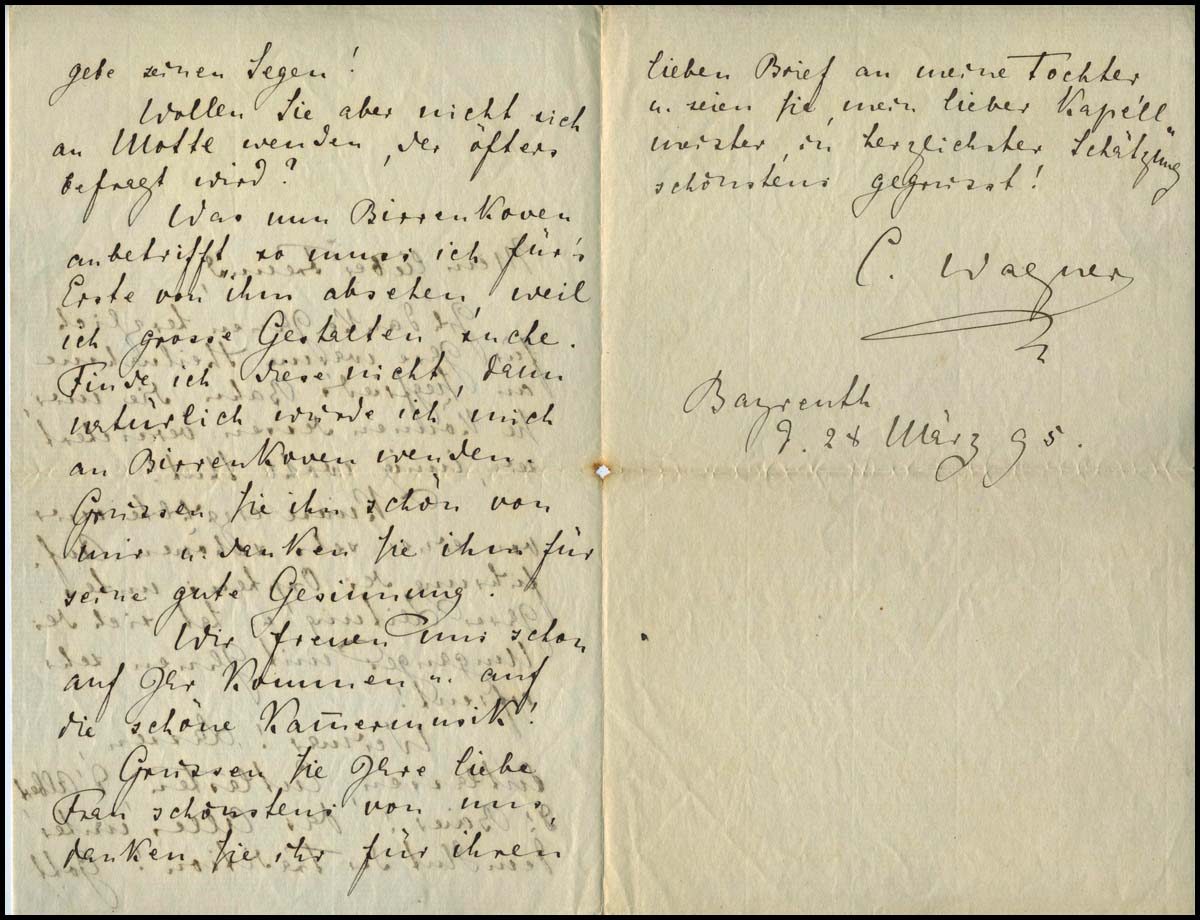 gebe seinen Segen!
Wollen Sie aber nicht sich
an Motte wenden, der öfters
befragt wird?
Was nun Birrenkoven
anbetrifft, so muss ich für's
Erste von ihm absehen, weil
ich grosse Gestalten suche.
Finde ich diese nicht, dann
natürlich würde ich mich
an Birrenkoven wenden.
Grüssen Sie ihn schön von
mir u. danken Sie ihm für
seine gute Gesinnung!
Wir freuen uns schon
auf Ihr Kommen u. auf
die schöne Kam̄ermusik!
Grüssen Sie Ihre liebe
Frau schönstens von uns,
danken Sie ihr für ihren
lieben Brief an meine Tochter
u. seien Sie, mein lieber Kapell
meister, in herzlichster Schätzung
schönstens gegrüsst!
C. Wagner
Bayreuth
d. 28 März 95.